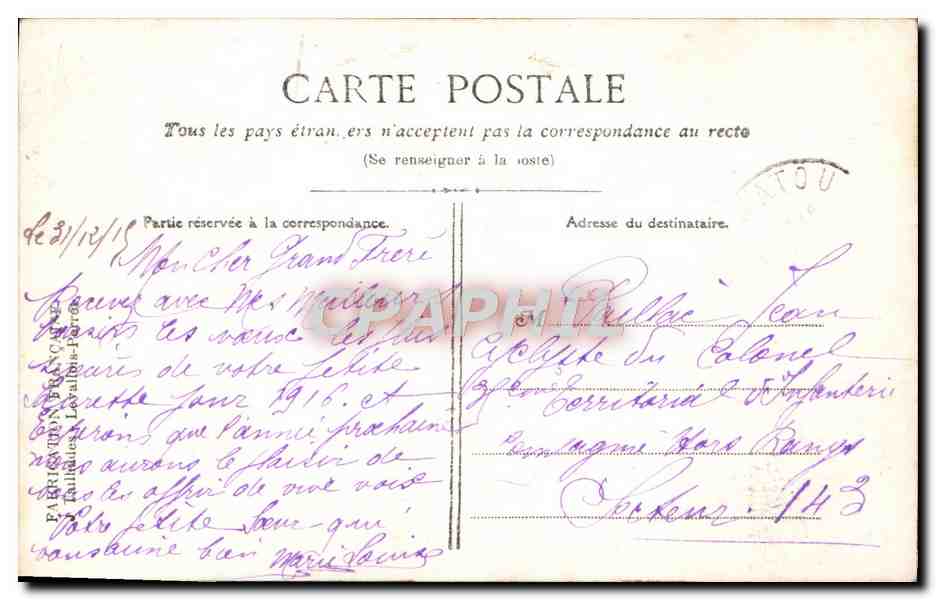 CARTE POSTALE
Tous les pays étrangers n'acceptent pas la correspondance au recto
(Se renseigner à la poste)
ATOU
Partie réservée à la correspondance.
Adresse du destinataire.
le 31/12/15
Mon Cher Grand Frere
Recevez avec mes meilleurs
baisers les vœux les plus
de votre petite
pour 1916. et
Esperons que l'année prochaine
nous aurons le plaisir de
vous les offrir de vive voix
Votre petite Sœur qui
vous aime bien Marie Louise
M Paillac Jean
Cycliste du Colonel
Territorial d'Infanterie
Compagnie Hors Rangs
Secteur 143
FABRICATION FRANÇAISE
Tailhades, Levallois-Perret
CPAPHIL